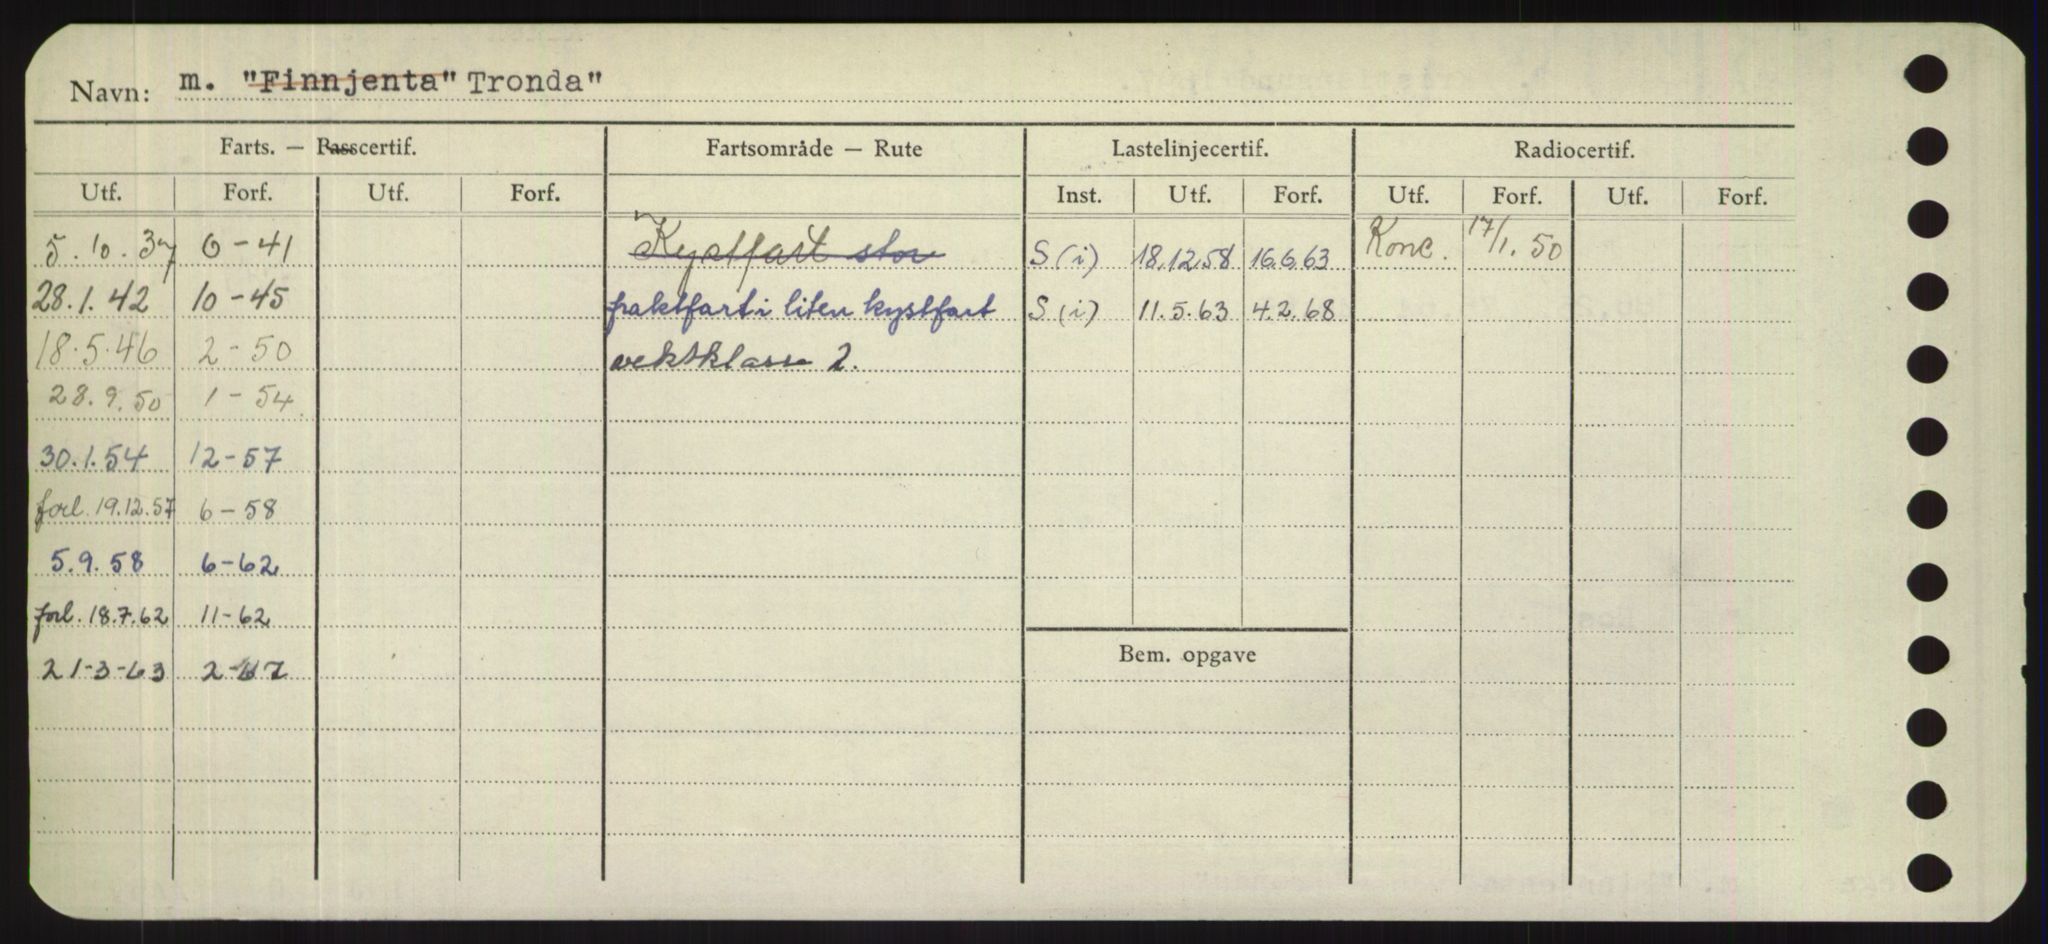 Navn: m. "Finnjenta" Tronda"
Farts. — Passcertif. Fartsområde — Rute Lastelinjecertif. Radiocertif.
Utf. Forf. Utf. Forf. Inst. Utf. Forf. Utf. Forf. Utf. Forf.
5.10.37 6-41 Kystfart stor S (i) 18.12.58 16.6.63 Konc. 17/1.50
28.1.42 10-45 fraktfart i liten kystfart S (i) 11.5.63 4.2.68
18.5.46 2-50 vektklasse 2.
28.9.50 1-54
30.1.54 12-57
forl. 19.12.57 6-58
5.9.58 6-62
forl. 18.7.62 11-62
21-3-63 2-67
Bem. opgave